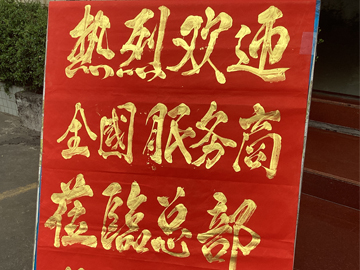 热烈欢迎
全國服务商
莅临总部